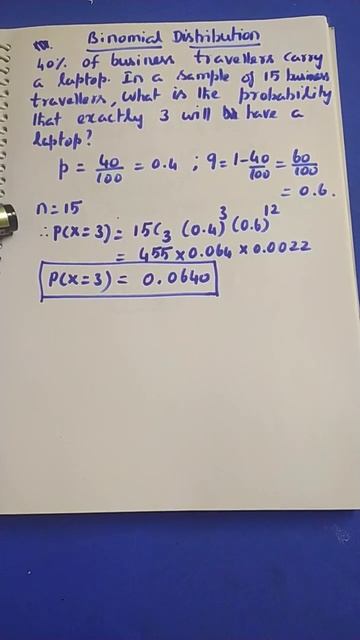 Binomial Distribution
40% of business travellers carry
a laptop. In a sample of 15 business
travellers, what is the probability
that exactly 3 will have a
laptop?
p = 40/100 = 0.4 ; q = 1-40/100 = 60/100
= 0.6.
n=15
∴ P(X=3) = 15C₃ (0.4)³ (0.6)¹²
= 455 × 0.064 × 0.0022
P(X=3) = 0.0640